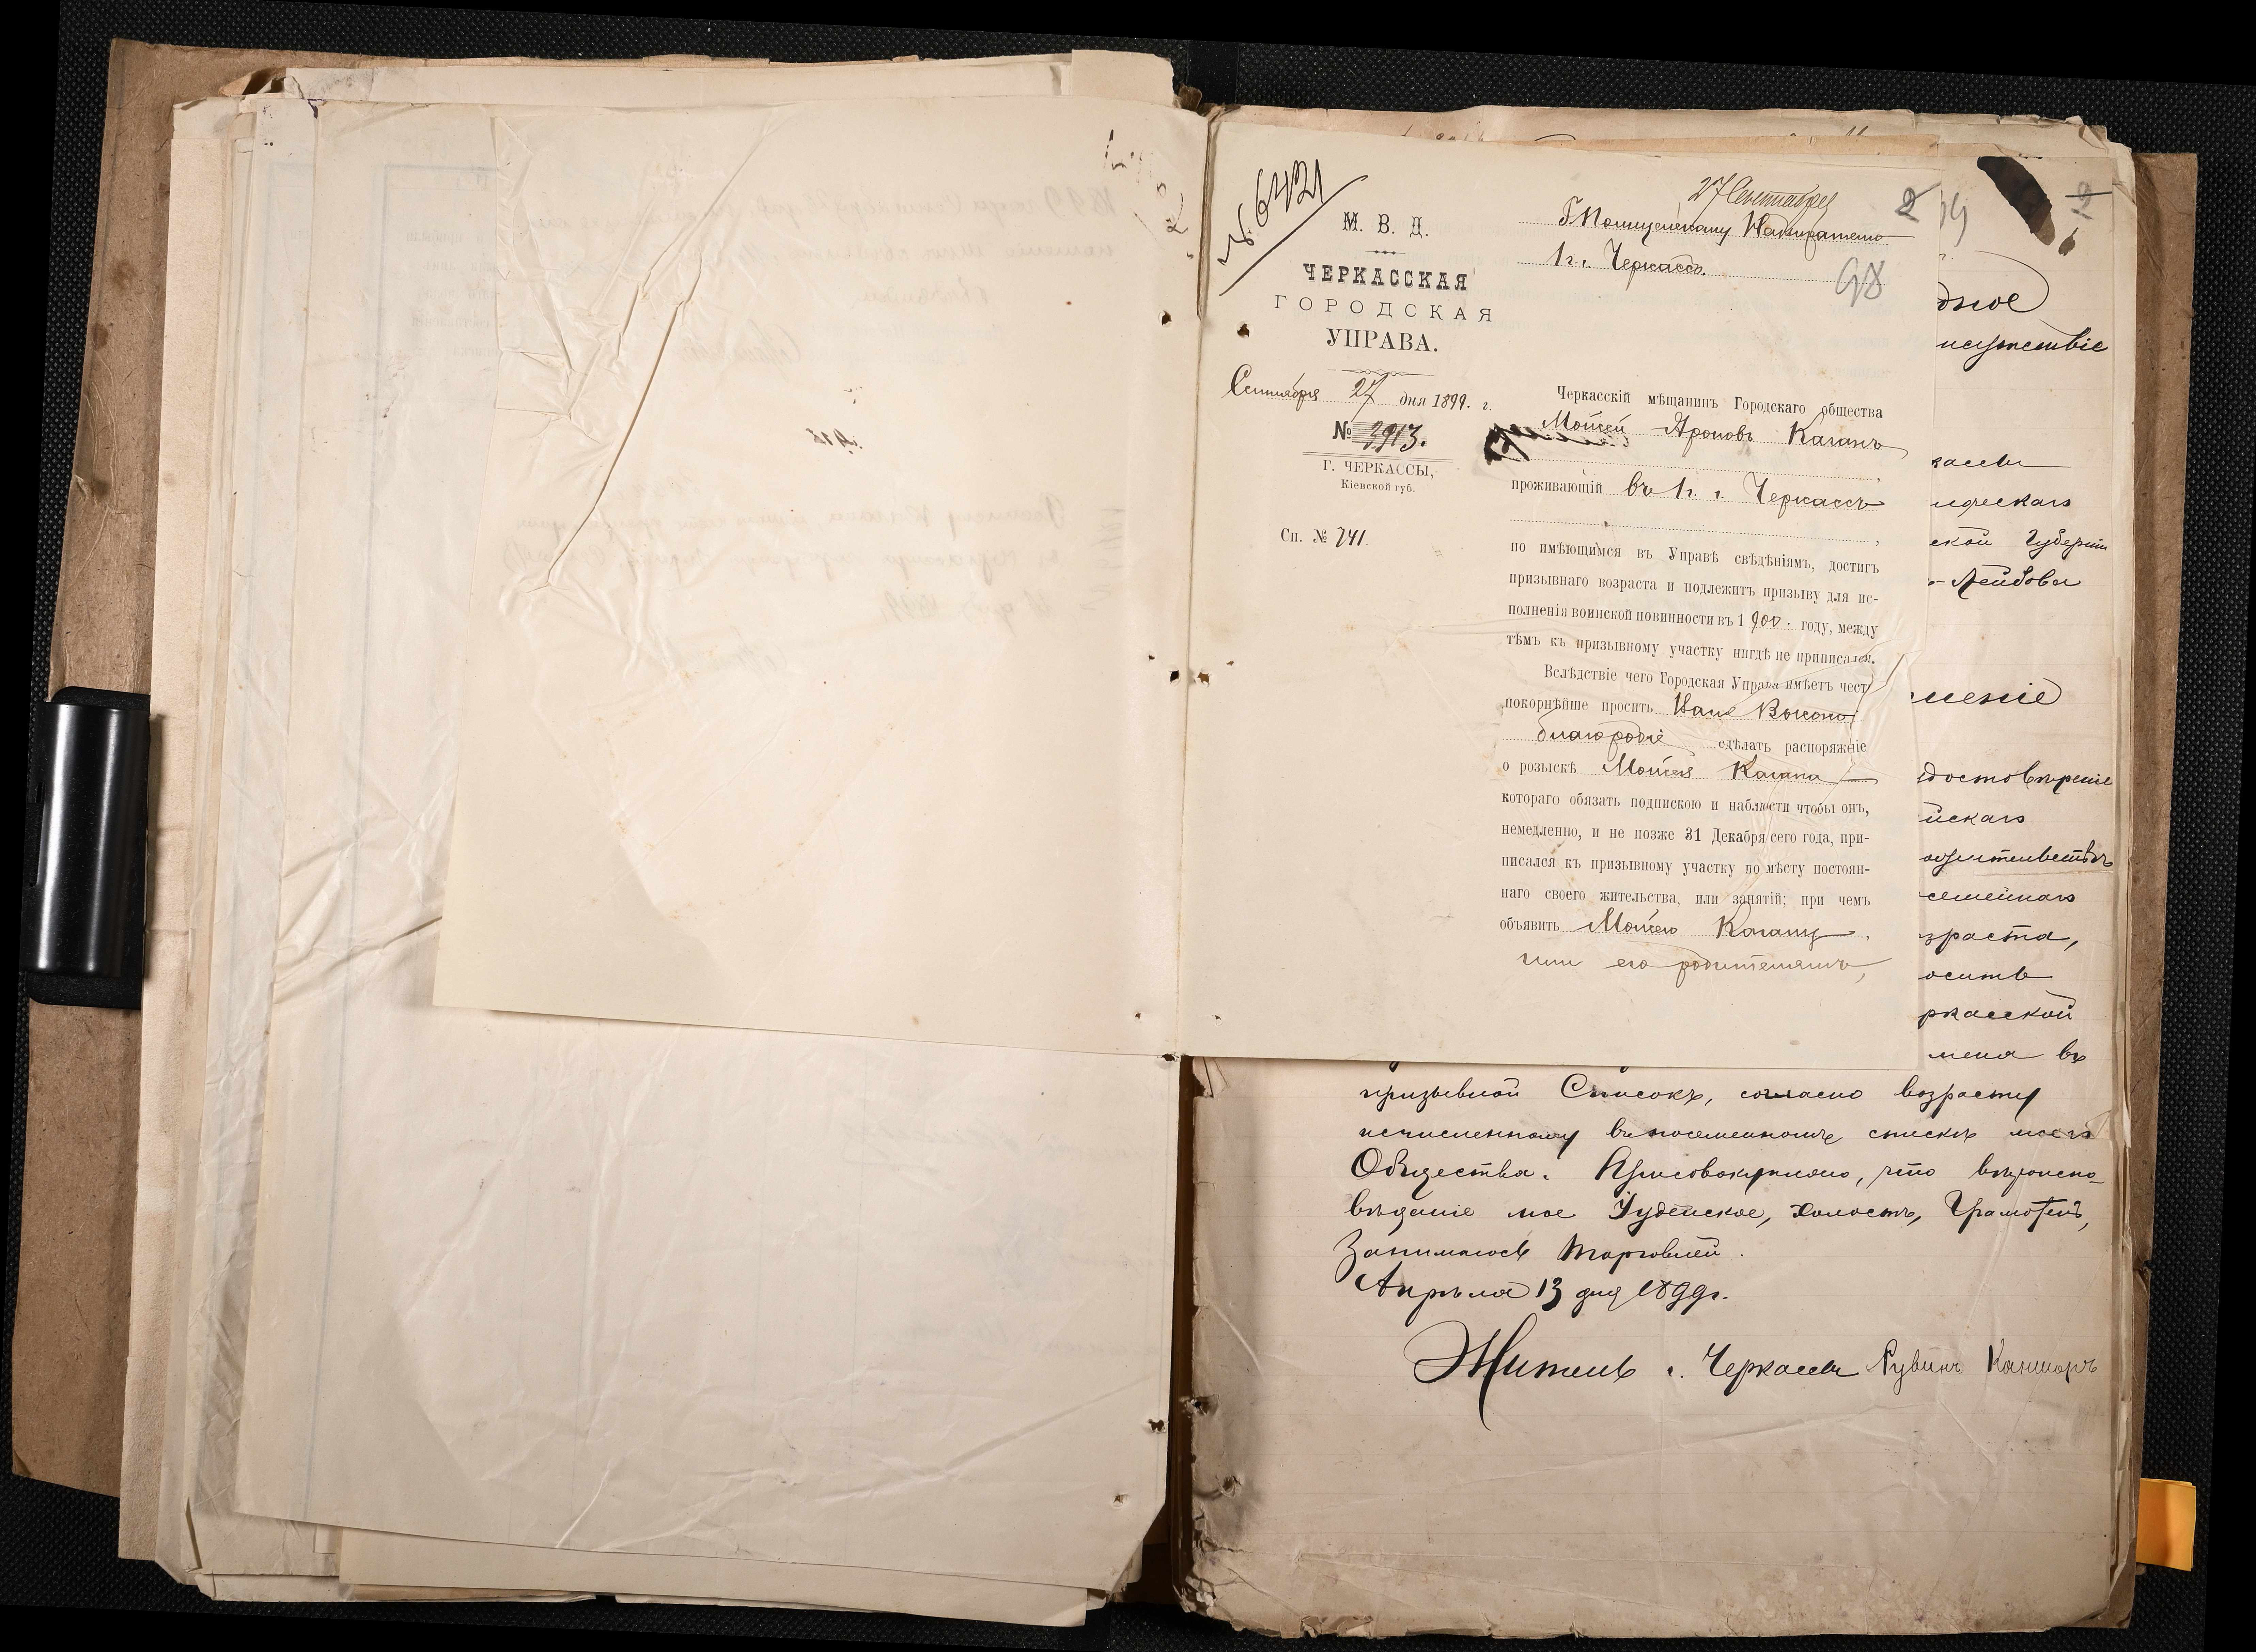 № 6421
М. В. Д.
ЧЕРКАССКАЯ
ГОРОДСКАЯ
УПРАВА.
Сентября 27 дня 1899. г.
№ 3913.
Г. ЧЕРКАССЫ,
Кіевской губ.
Сп. № 241
27 Сентября
2
Г Полицейскому Надзирателю
1 г. Черкассъ
98
Черкасскій мѣщанинъ Городскаго общества
Мойсей Ароновъ Каганъ
проживающій въ г. Черкассъ
по имѣющимся въ Управѣ свѣдѣніямъ, достигъ
призывнаго возраста и подлежитъ призыву для ис-
полненія воинской повинности въ 1900. году, между
тѣмъ къ призывному участку нигдѣ не приписался.
Вслѣдствіе чего Городская Управа имѣетъ чест
покорнѣйше просить Ваше Высоко
благородіе сдѣлать распоряженіе
о розыскѣ Мойсея Кагана
котораго обязать подпискою и наблюсти чтобы онъ,
немедленно, и не позже 31 Декабря сего года, при-
писался къ призывному участку по мѣсту постоян-
наго своего жительства, или занятій; при чемъ
объявить Мойсею Кагану,
или его родителямъ,
дное
исутствіе
кассы
ической
ской Губерніи
-Лейбова
шеніе
достовѣреніе
йскаго
семейнаго
зраста,
осить
ркасской
меня въ
призывной Списокъ, согласно возрасту
исчисленному въ посемейномъ спискѣ моего
Общества. Присовокупляю, что вѣроиспо-
вѣданіе мое Іудейское, холостъ, Грамотенъ,
Занимаюсь торговлей.
Апрѣля 13 дня 1899г.
Житель г. Черкассы Рувинъ Канторъ